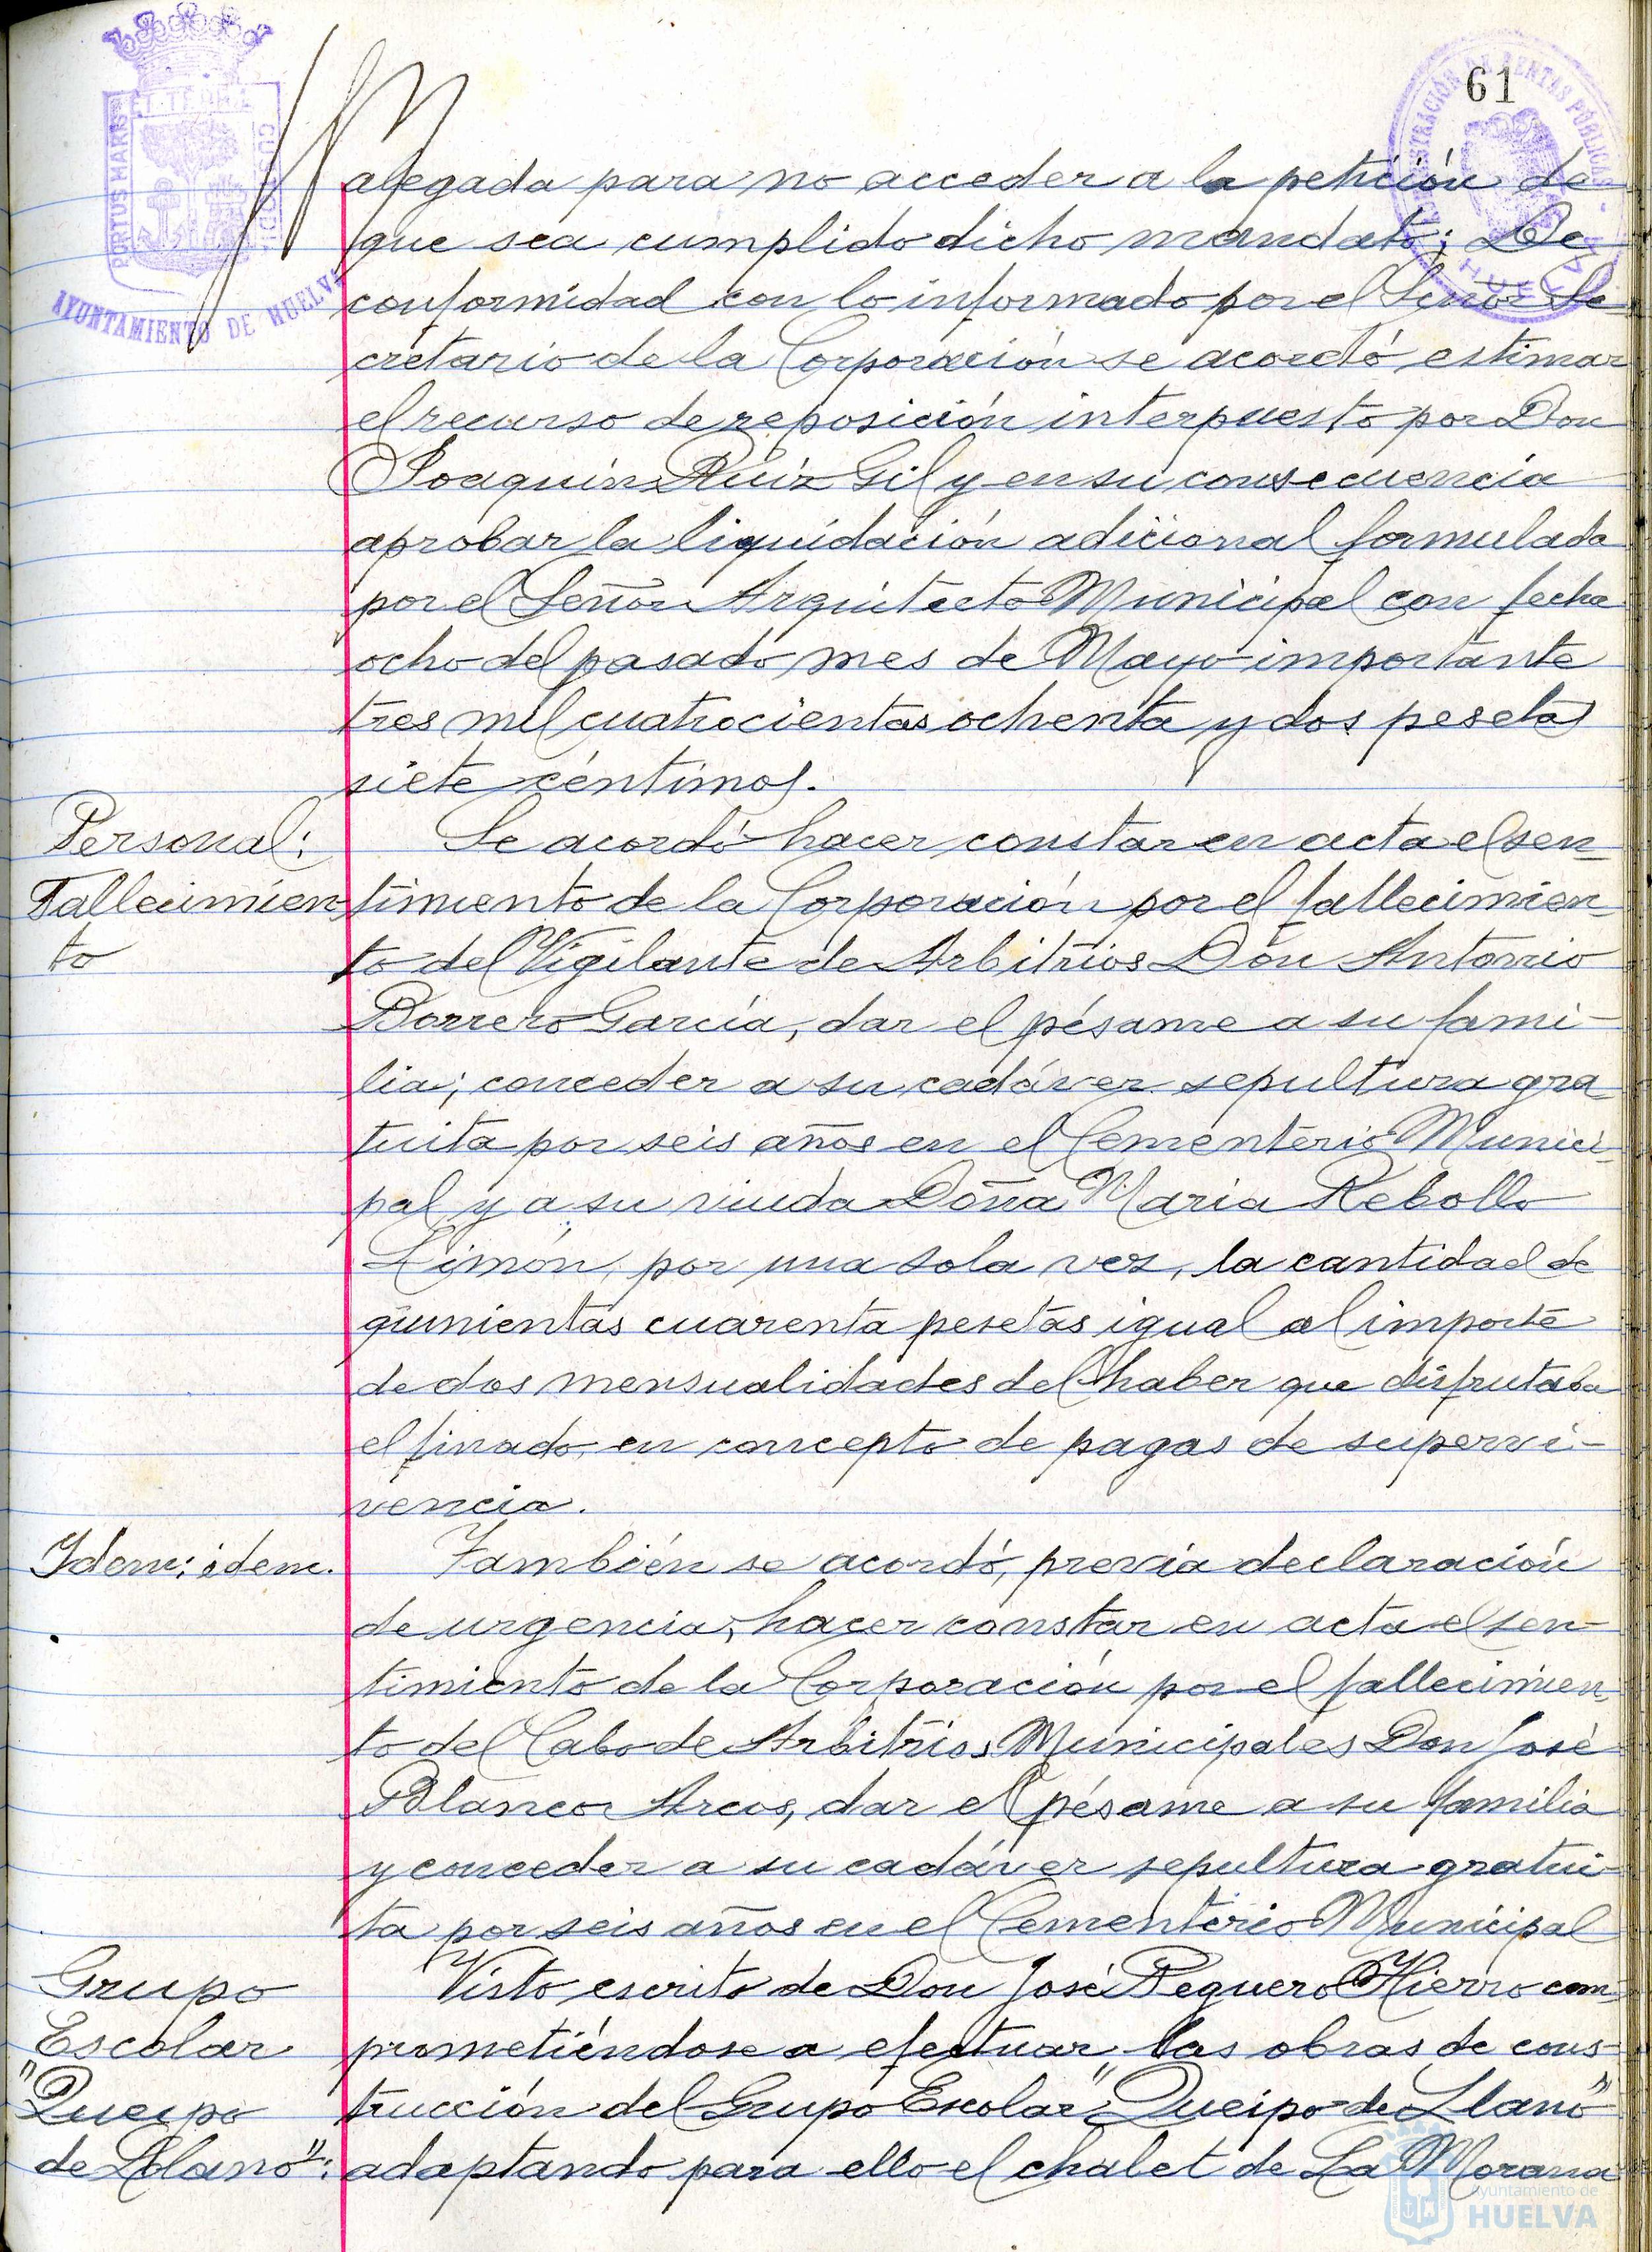 61
PORTUS MARIS ET TERRÆ CUSTODIA
AYUNTAMIENTO DE HUELVA
ADMINISTRACIÓN DE RENTAS PÚBLICAS
HUELVA
alegada para no acceder a la petición de
que sea cumplido dicho mandato; De
conformidad con lo informado por el Señor Se
cretario de la Corporación se acordó estimar
el recurso de reposición interpuesto por Don
Joaquin Ruiz Gil y en su consecuencia
aprobar la liquidación adicional formulada
por el Señor Arquitecto Municipal con fecha
ocho del pasado mes de Mayo importante
tres mil cuatrocientas ochenta y dos pesetas
siete céntimos.
Personal:
Fallecimien
to
Se acordó hacer constar en acta el sen
timiento de la Corporación por el fallecimien
to del Vigilante de Arbitrios Don Antonio
Borrero García, dar el pésame a su fami-
lia; conceder a su cadáver sepultura gra
tuita por seis años en el Cementerio Munici
pal y a su viuda Doña Maria Rebollo
Limón, por una sola vez, la cantidad de
quinientas cuarenta pesetas igual al importe
de dos mensualidades del haber que disfrutaba
el finado en concepto de pagas de supervi-
vencia.
Idem: idem.
También se acordó, previa declaración
de urgencia, hacer constar en acta el sen-
timiento de la Corporación por el fallecimien
to del Cabo de Arbitrios Municipales Don José
Blanco Arcos, dar el pésame a su familia
y conceder a su cadáver sepultura gratui-
ta por seis años en el Cementerio Municipal
Grupo
Escolar
"Queipo
de Llano":
Visto escrito de Don José Reguero Hierro com
prometiéndose a efectuar las obras de cons-
trucción del Grupo Escolar "Queipo de Llano"
adaptando para ello el chalet de La Morana
Ayuntamiento de
HUELVA